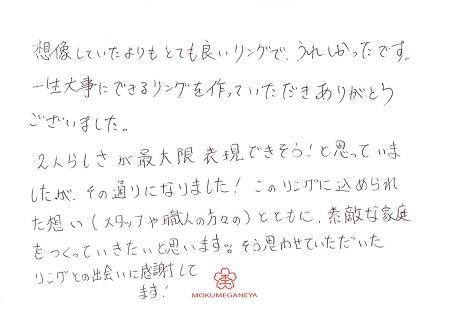 想像していたよりもとても良いリングで、うれしかったです。
一生大事にできるリングを作っていただきありがとう
ございました。
2人らしさが最大限表現できそう!と思っていま
したが、その通りになりました!このリングに込められ
た想い(スタッフや職人の方々の)とともに、素敵な家庭
をつくっていきたいと思います。そう思わせていただいた
リングとの出会いに感謝して
ます!
MOKUMEGANEYA